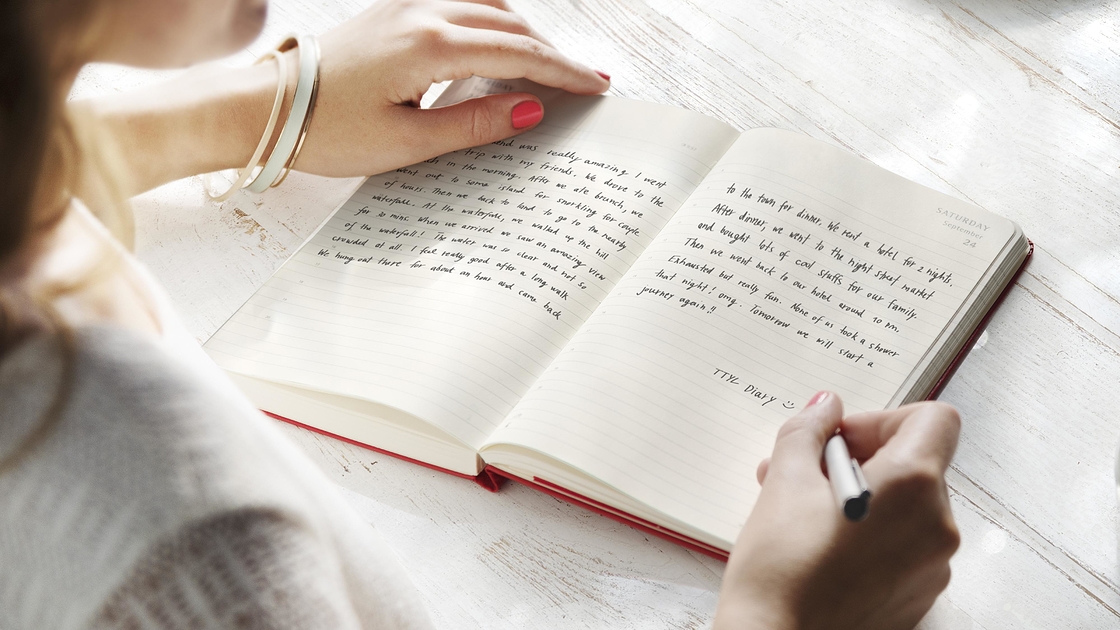 end was really amazing. I went
trip with my friends. We drove to the
in the morning. After we ate brunch, we
went out to some island for snorkling for couple
of hours. Then we back to land to go to the nearby
waterfall. At the waterfall, we walked up the hill
for 30 mins. When we arrived we saw an amazing view
of the waterfall! The water was so clear and not so
crowded at all. I feel really good after a long walk
We hung out there for about an hour and came back
SATURDAY
September
24
to the town for dinner. We rent a hotel for 2 nights.
After dinner, we went to the night street market
and bought lots of cool stuffs for our family.
Then we went back to our hotel around 10 pm.
Exhausted but really fun. None of us took a shower
that night! omg. Tomorrow we will start a
journey again!!
TTYL Diary :)